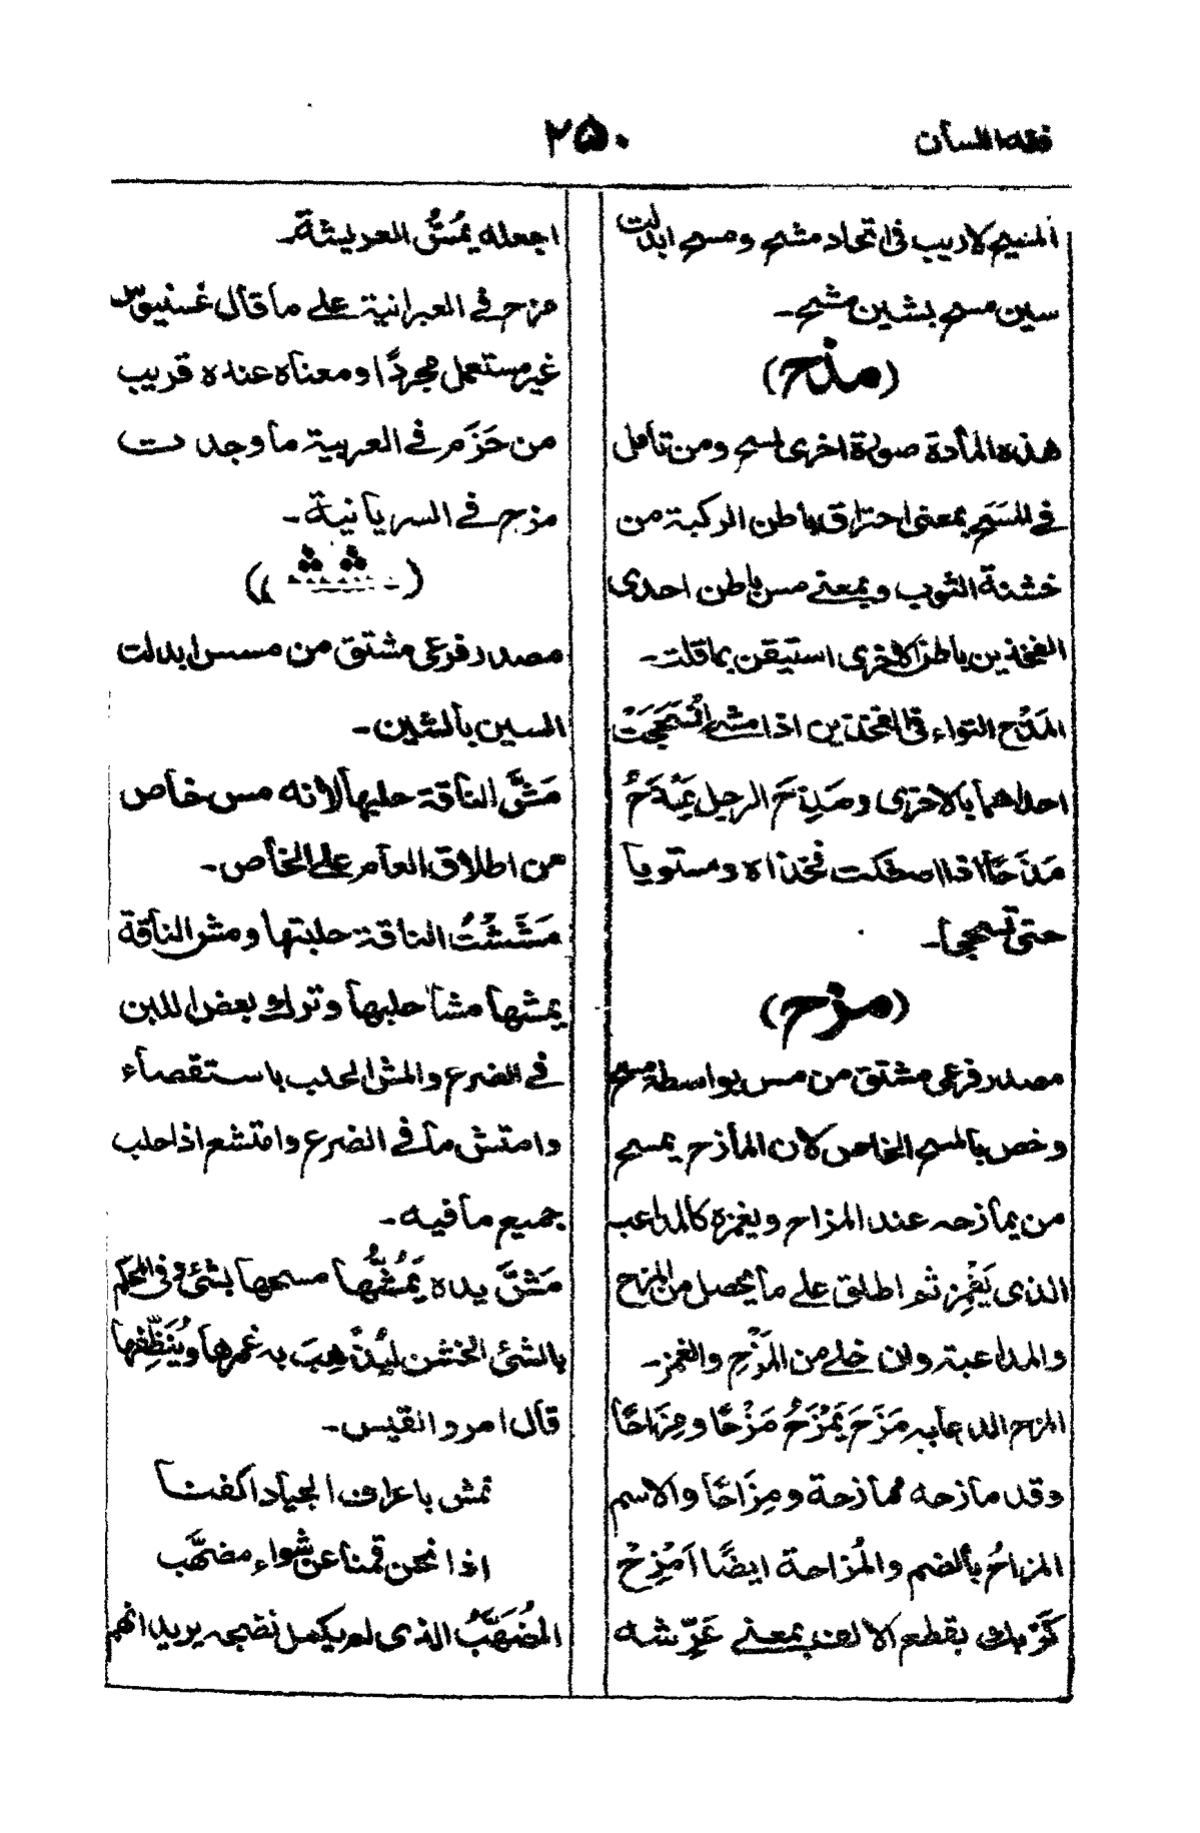 فقه اللسان
۲۵۰
المنيح لاريب فى اتحاد مشح ومسح ابدلت
سين مسح بشين مشح۔
(مذح)
هذه المادة صورة اخرى لمسح ومن تأمل
فى المسح بمعنى احتراق باطن الركبة من
خشنة الثوب وبمعنى مس باطن احدى
الفخذين باطن الاخرى استيقن بما قلت۔
المَذْح التواء فى الفخذين اذا مشى انسَحَجَتْ
احداهما بالاخرى ومَذِحَ الرجل يَمْذَحُ
مَذَحًا اذا اصطكت فخذاه ومستويا
حتى تسحجا۔
(مزح)
مصدر فرعى مشتق من مس بواسطة مسح
وخص بالمسح الخاص لان المأزح يمسح
من يمأزحه عند المزاح ويغمزه كالمداعب
الذى يَغْمِز ثم اطلق على ما يحصل من المزاح
والمداعبة وان خلى من المَزْحِ والغمز۔
المزح الدعابه مَزَحَ يَمْزَحُ مَزْحًا ومِزَاحًا
وقد مازحه ممازحة ومِزَاحًا والاسم
المزاحُ بالضم والمُزاحة ايضًا اَمْزِحْ
كَرْمك بقطع الالف بمعنى عَرِّشه
اجعله يمُسُّ العريشة۔
مزح فى العبرانية على ما قال غسنيوس
غير مستعمل مجردًا ومعناه عنده قريب
من حَزَم فى العربية ما وجدت
مزح فى السريانية۔
( )
مصدر فرعى مشتق من مسس ابدلت
السين بالشين۔
مَشَّ الناقة حلبها لأنه مس خاص
من اطلاق العام على الخاص۔
مَشَشْتُ الناقة حلبتها ومش الناقة
يمشها مشا حلبها وترك بعض اللبن
فى الضرع والمش الحلب باستقصاء
وامتش ما فى الضرع وامتشع اذا حلب
جميع ما فيه۔
مَشَّ يده يَمُشُّها مسحها بشئ وفى المحكم
بالشئ الخشن ليُذْهِبَ به غمرها ويُنَظِّفها
قال امرو القيس۔
نمش باعراف الجياد اكفنا
اذا نحن قمنا عن شواء مضهّب
المُضَهَّبُ الذى لم يكمل نضجه يريد انهم